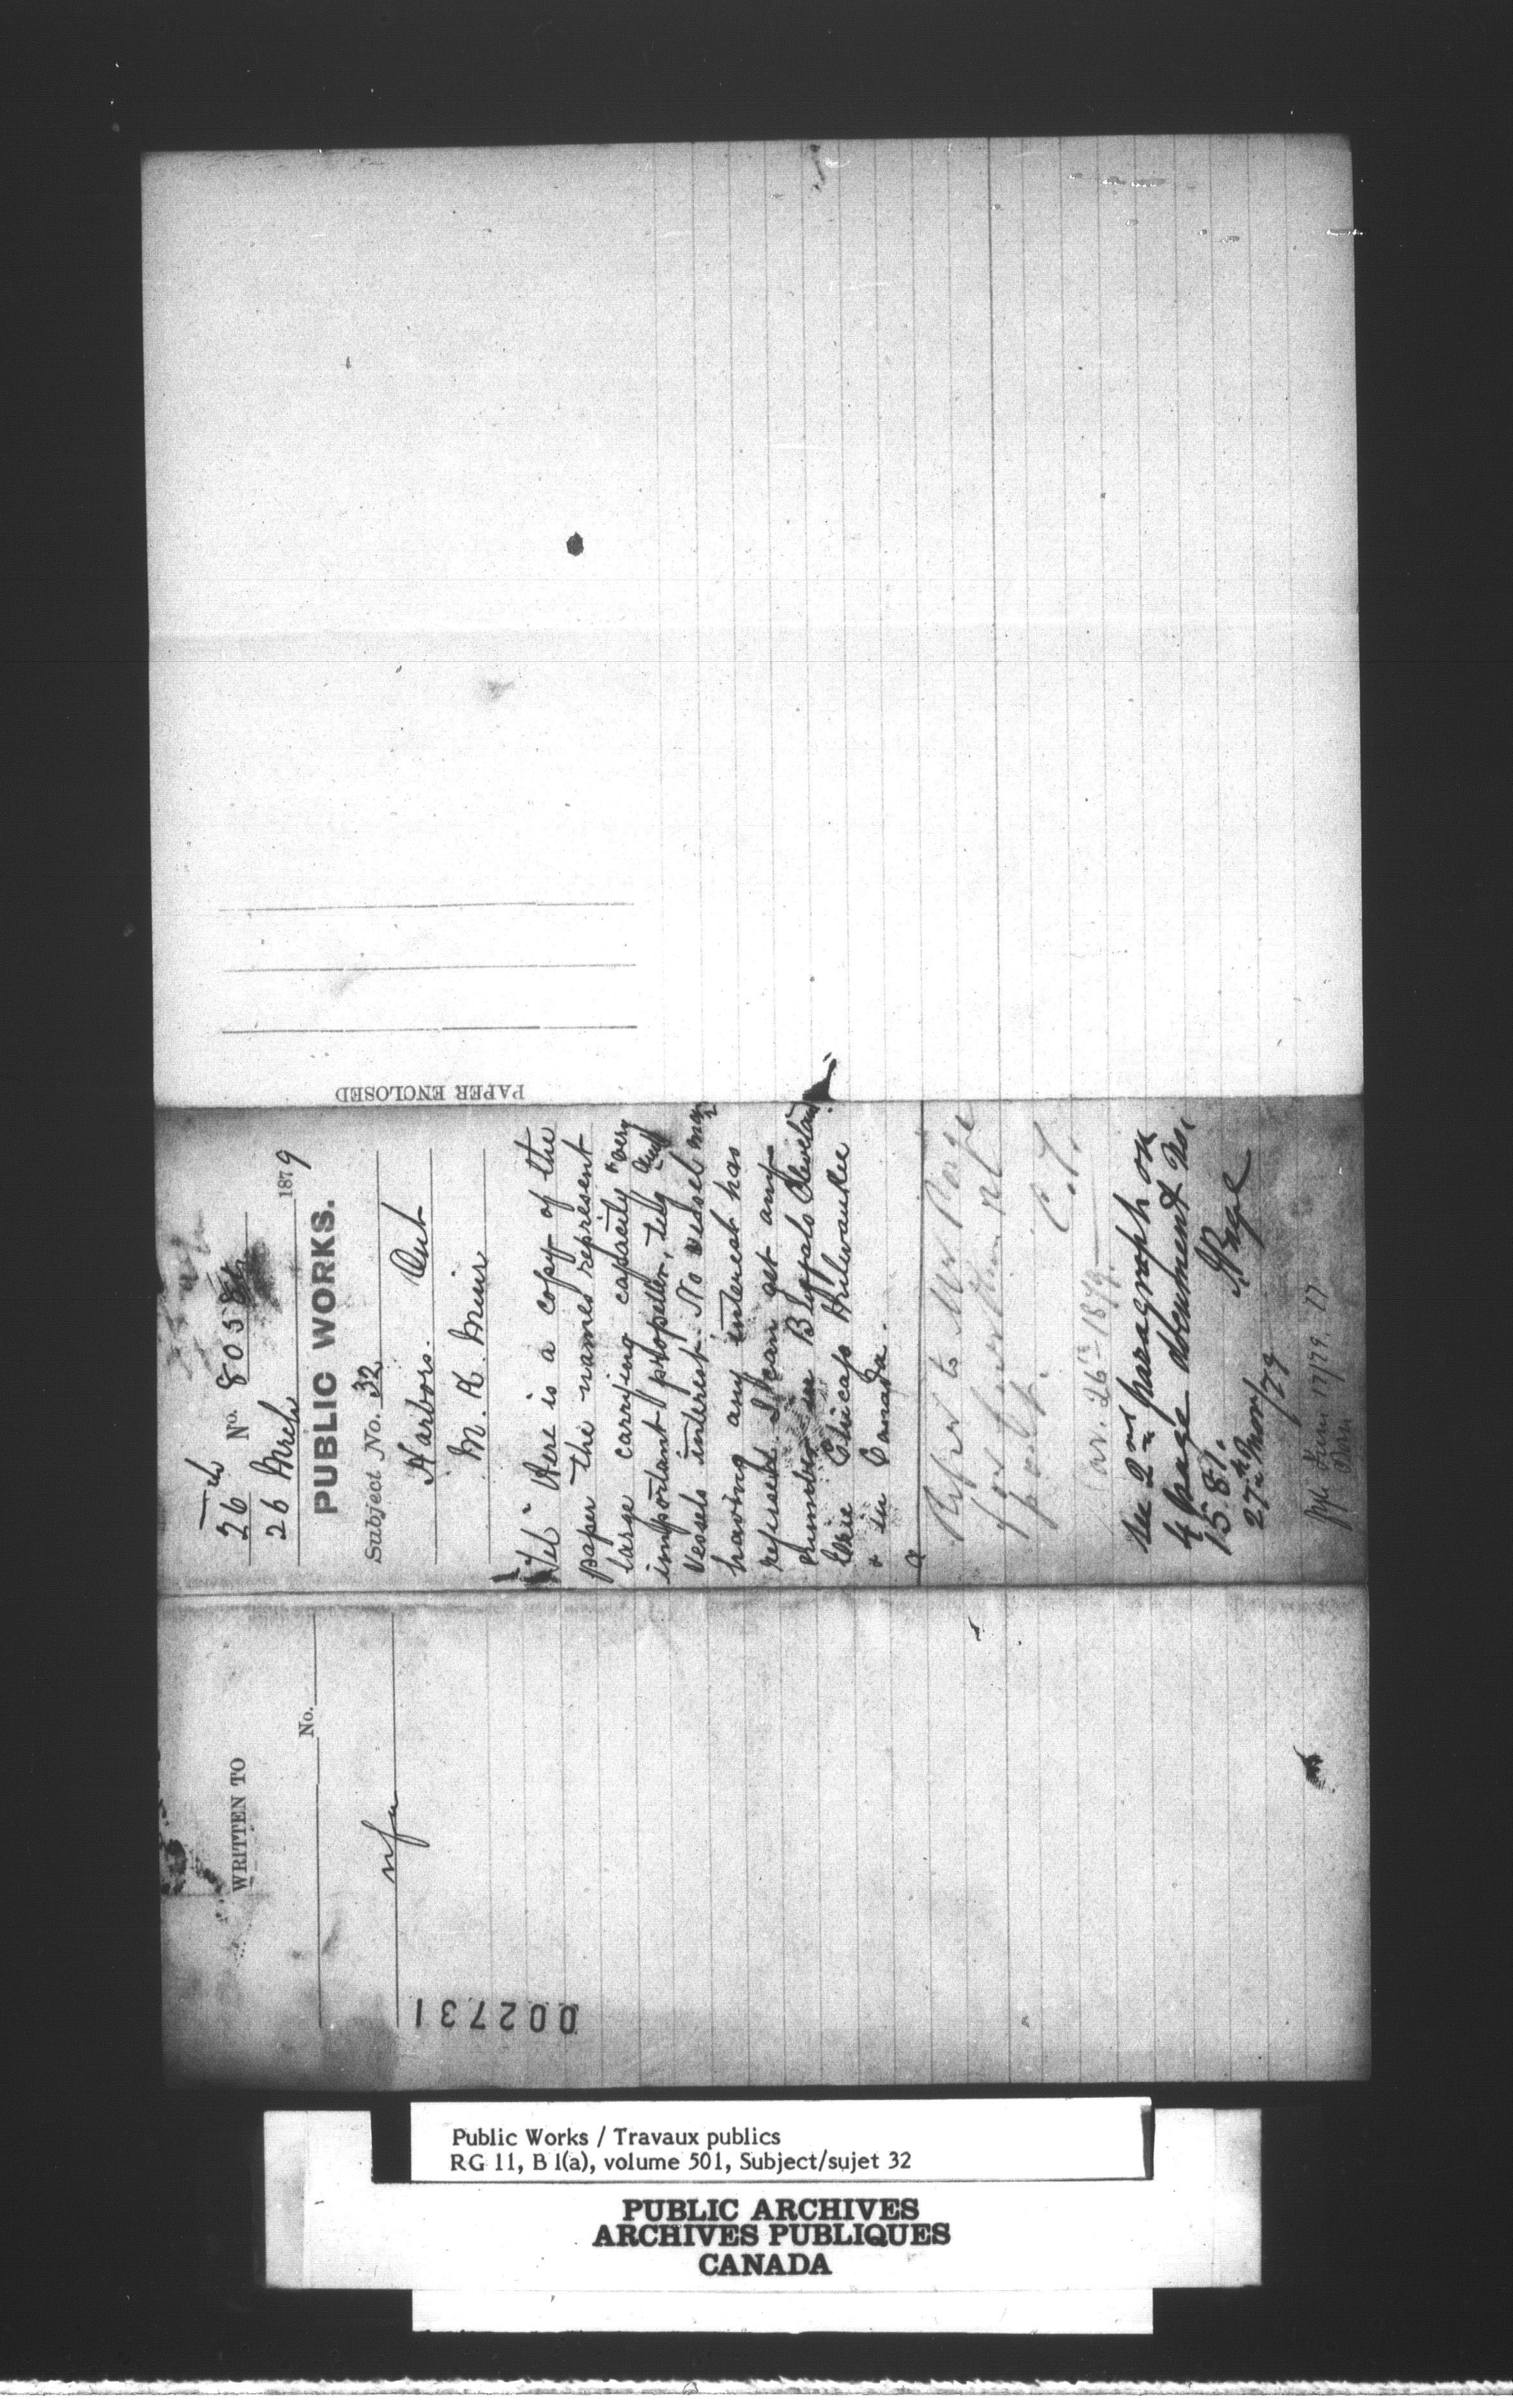 PAPER ENCLOSED
26 No. 8058
26 Mrch 1879
PUBLIC WORKS.
Subject No. 32
Harbors. Ont
M. K. Muir
Here is a copy of the
paper the names represent
large carrying capacity "very
important propeller, tug and
vessels interest. No vessel man
having any interest has
refused. I can get any
number in Buffalo Cleveland
Erie Chicago Milwaukee
+ in Canada.
Refer to Mr Page
for further re
port.
C. T.
26th 1879.
See 2nd paragraph on
4 page document No.
1587.
J. Page
27th Mar/79
WRITTEN TO
No.
nfa
002731
Public Works / Travaux publics
RG 11, B 1(a), volume 501, Subject/sujet 32
PUBLIC ARCHIVES
ARCHIVES PUBLIQUES
CANADA